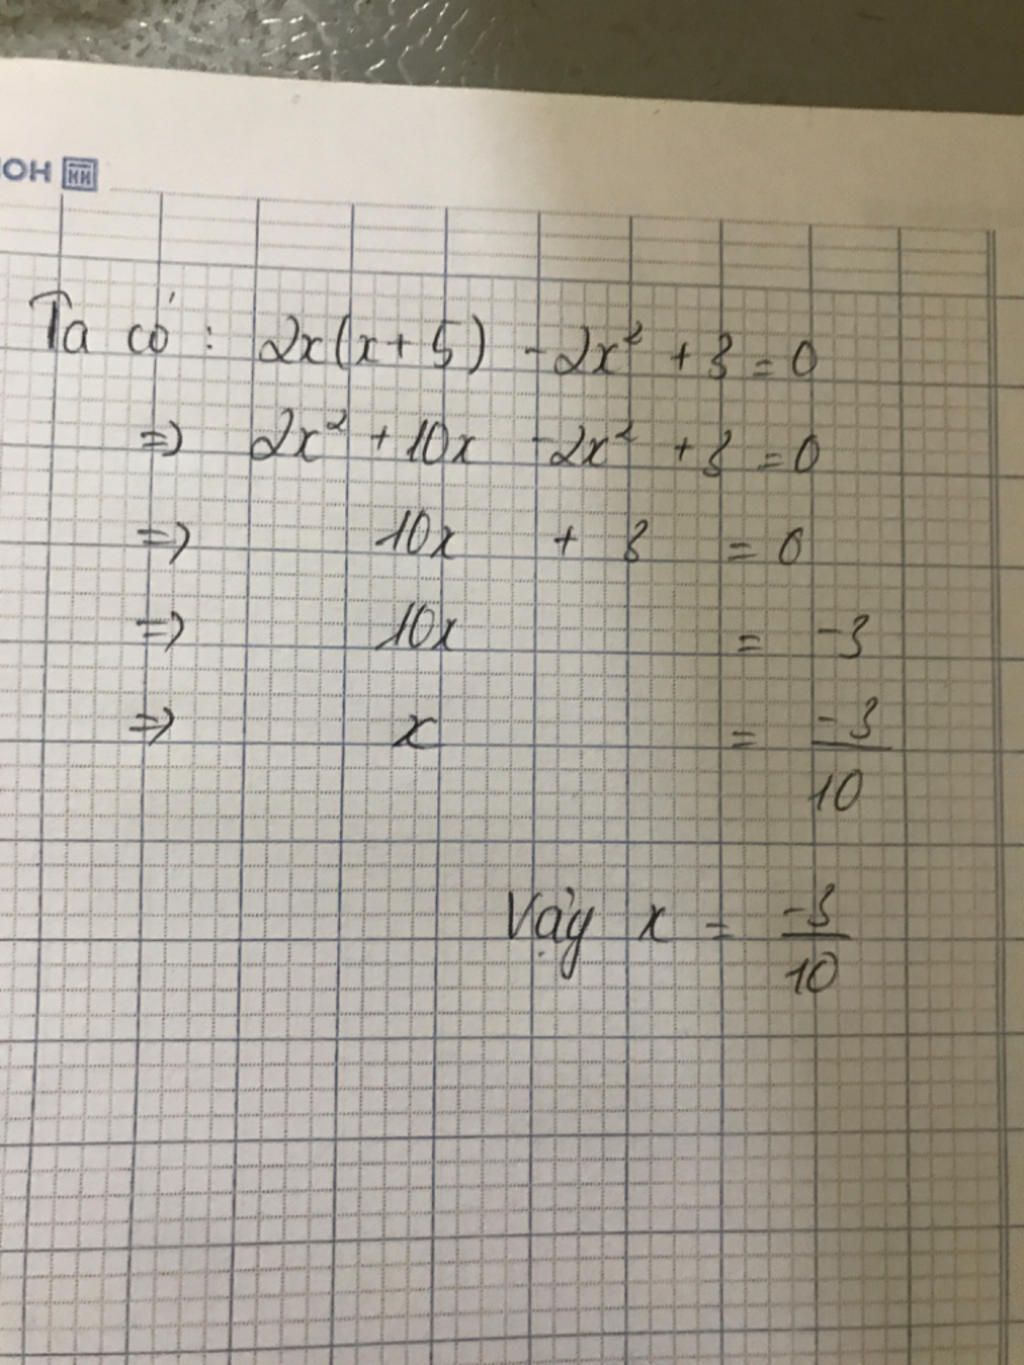 HOH
Ta có : 2x(x + 5) - 2x² + 3 = 0
=> 2x² + 10x - 2x² + 3 = 0
=> 10x + 3 = 0
=> 10x = -3
=> x = -3/10
Vậy x = -3/10